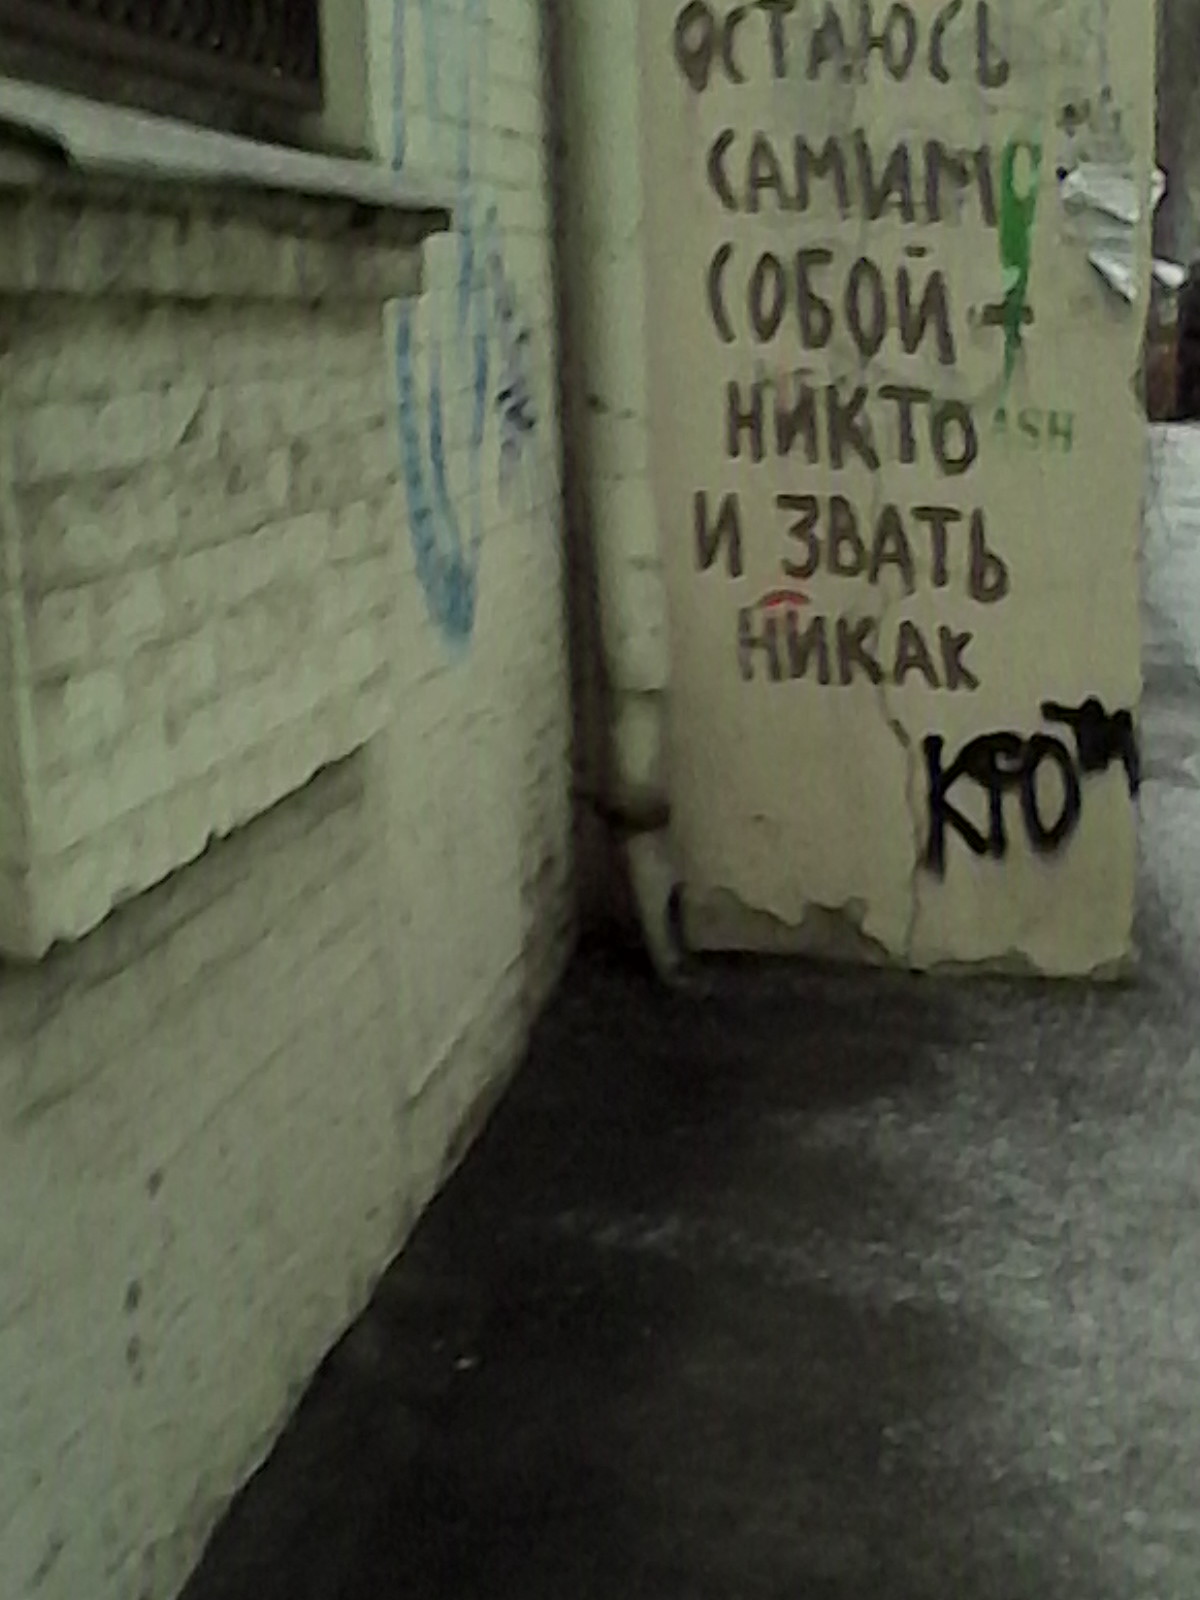 ОСТАЮСЬ
САМИМ
СОБОЙ
НИКТО
И ЗВАТЬ
НИКАК